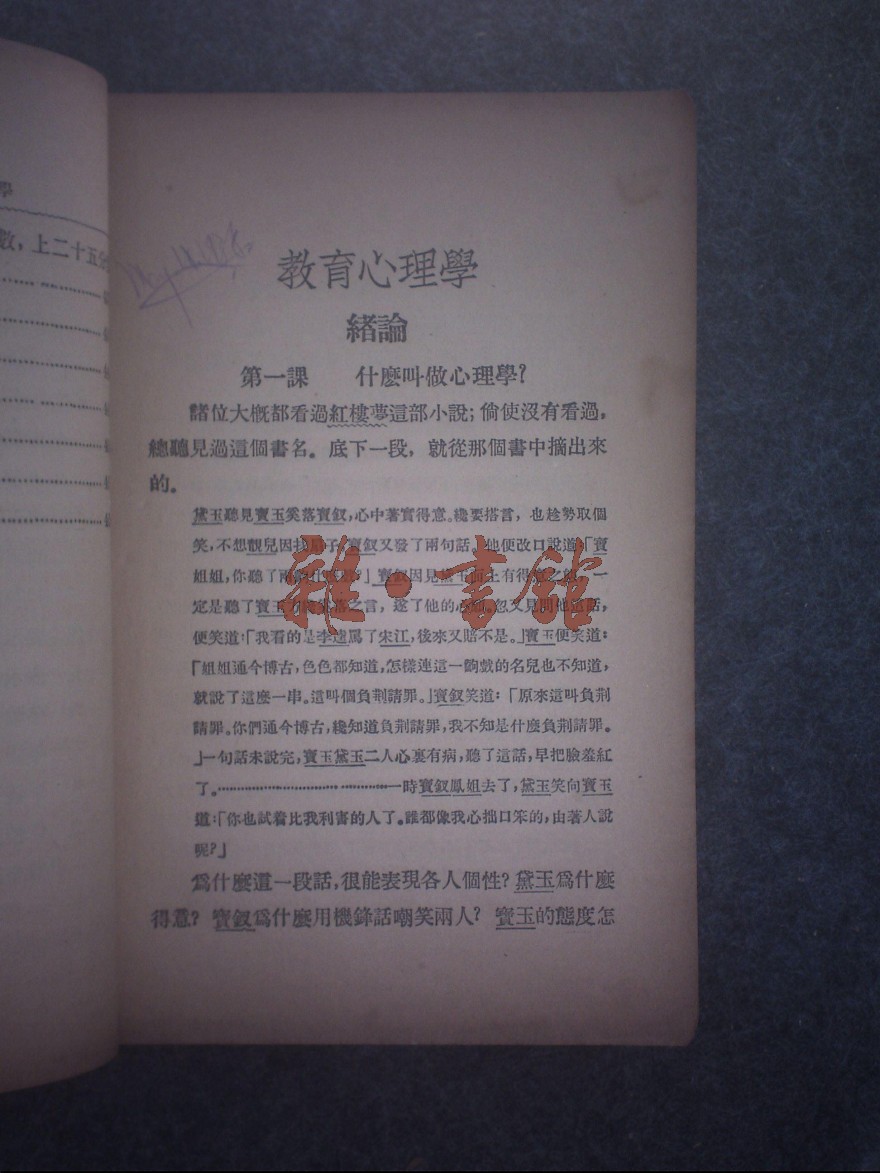 學
數，上二十五分
教育心理學
緒論
第一課　什麽叫做心理學？
諸位大槪都看過紅樓夢這部小說；倘使沒有看過，
總聽見過這個書名。底下一段，就從那個書中摘出來
的。
黛玉聽見寶玉奚落寶釵，心中著實得意。纔要搭言，也趁勢取個
笑，不想靚兒因找扇子，寶釵又發了兩句話，他便改口說道：「寶
姐姐，你聽了兩齣什麽戲？」寶釵因見黛玉面上有得意之態，一
定是聽了寶玉方纔奚落之言，遂了他的心願。忽又見問他這話，
便笑道：「我看的是李逵罵了宋江，後來又賠不是。」寶玉便笑道：
「姐姐通今博古，色色都知道，怎樣連這一齣戲的名兒也不知道，
就說了這麽一串。這叫個負荆請罪。」寶釵笑道：「原來這叫負荆
請罪。你們通今博古，纔知道負荆請罪，我不知是什麽負荆請罪。
」一句話未說完，寶玉黛玉二人心裏有病，聽了這話，早把臉羞紅
了。………………………一時寶釵鳳姐去了，黛玉笑向寶玉
道：「你也試着比我利害的人了。誰都像我心拙口笨的，由著人說
呢？」
爲什麽這一段話，很能表現各人個性？黛玉爲什麽
得意？寶釵爲什麽用機鋒話嘲笑兩人？寶玉的態度怎
雜·書館